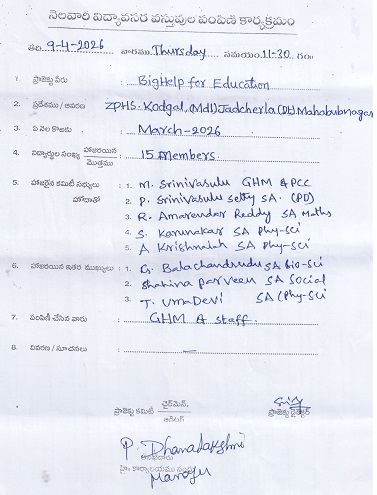 నెలవారీ విద్యావసర వస్తువుల పంపిణి కార్యక్రమం
తేది. 9-4-2026 వారము Thursday సమయం. 11-30 గం॥
1. ప్రాజెక్టు పేరు : BigHelp for Education
2. ప్రదేశము / ఆవరణ : ZPHS-Kodgal,(Mdl)Jadcherla,(Dt)Mahabubnagar
3. ఏ నెల కొఱకు : March-2026
4. విద్యార్థుల సంఖ్య హాజరయిన మొత్తము : 15 Members.
5. హాజరైన కమిటీ సభ్యులు : 1. M. Srinivasulu GHM & PCC
హోదాతో 2. P. Srinivasulu Setty SA. (PD)
3. R. Amarendar Reddy SA Maths
4. S. Karunakar SA Phy-Sci
5. A Krishnaiah SA Phy-Sci
6. హాజరయిన ఇతర ముఖ్యులు : 1. G. Balachandrudu SA Bio-Sci
2. Shahina Parveen SA Social
3. T. UmaDevi SA (Phy-Sci
7. పంపిణీ చేసిన వారు : GHM & Staff.
8. వివరణ / సూచనలు : —
ప్రాజెక్టు కమిటీ ఛైర్మెన్. ఆడిటర్
ప్రాజెక్టు డైరెక్టర్
P. Dhanalakshmi
హై. కార్యాలయము
Manager